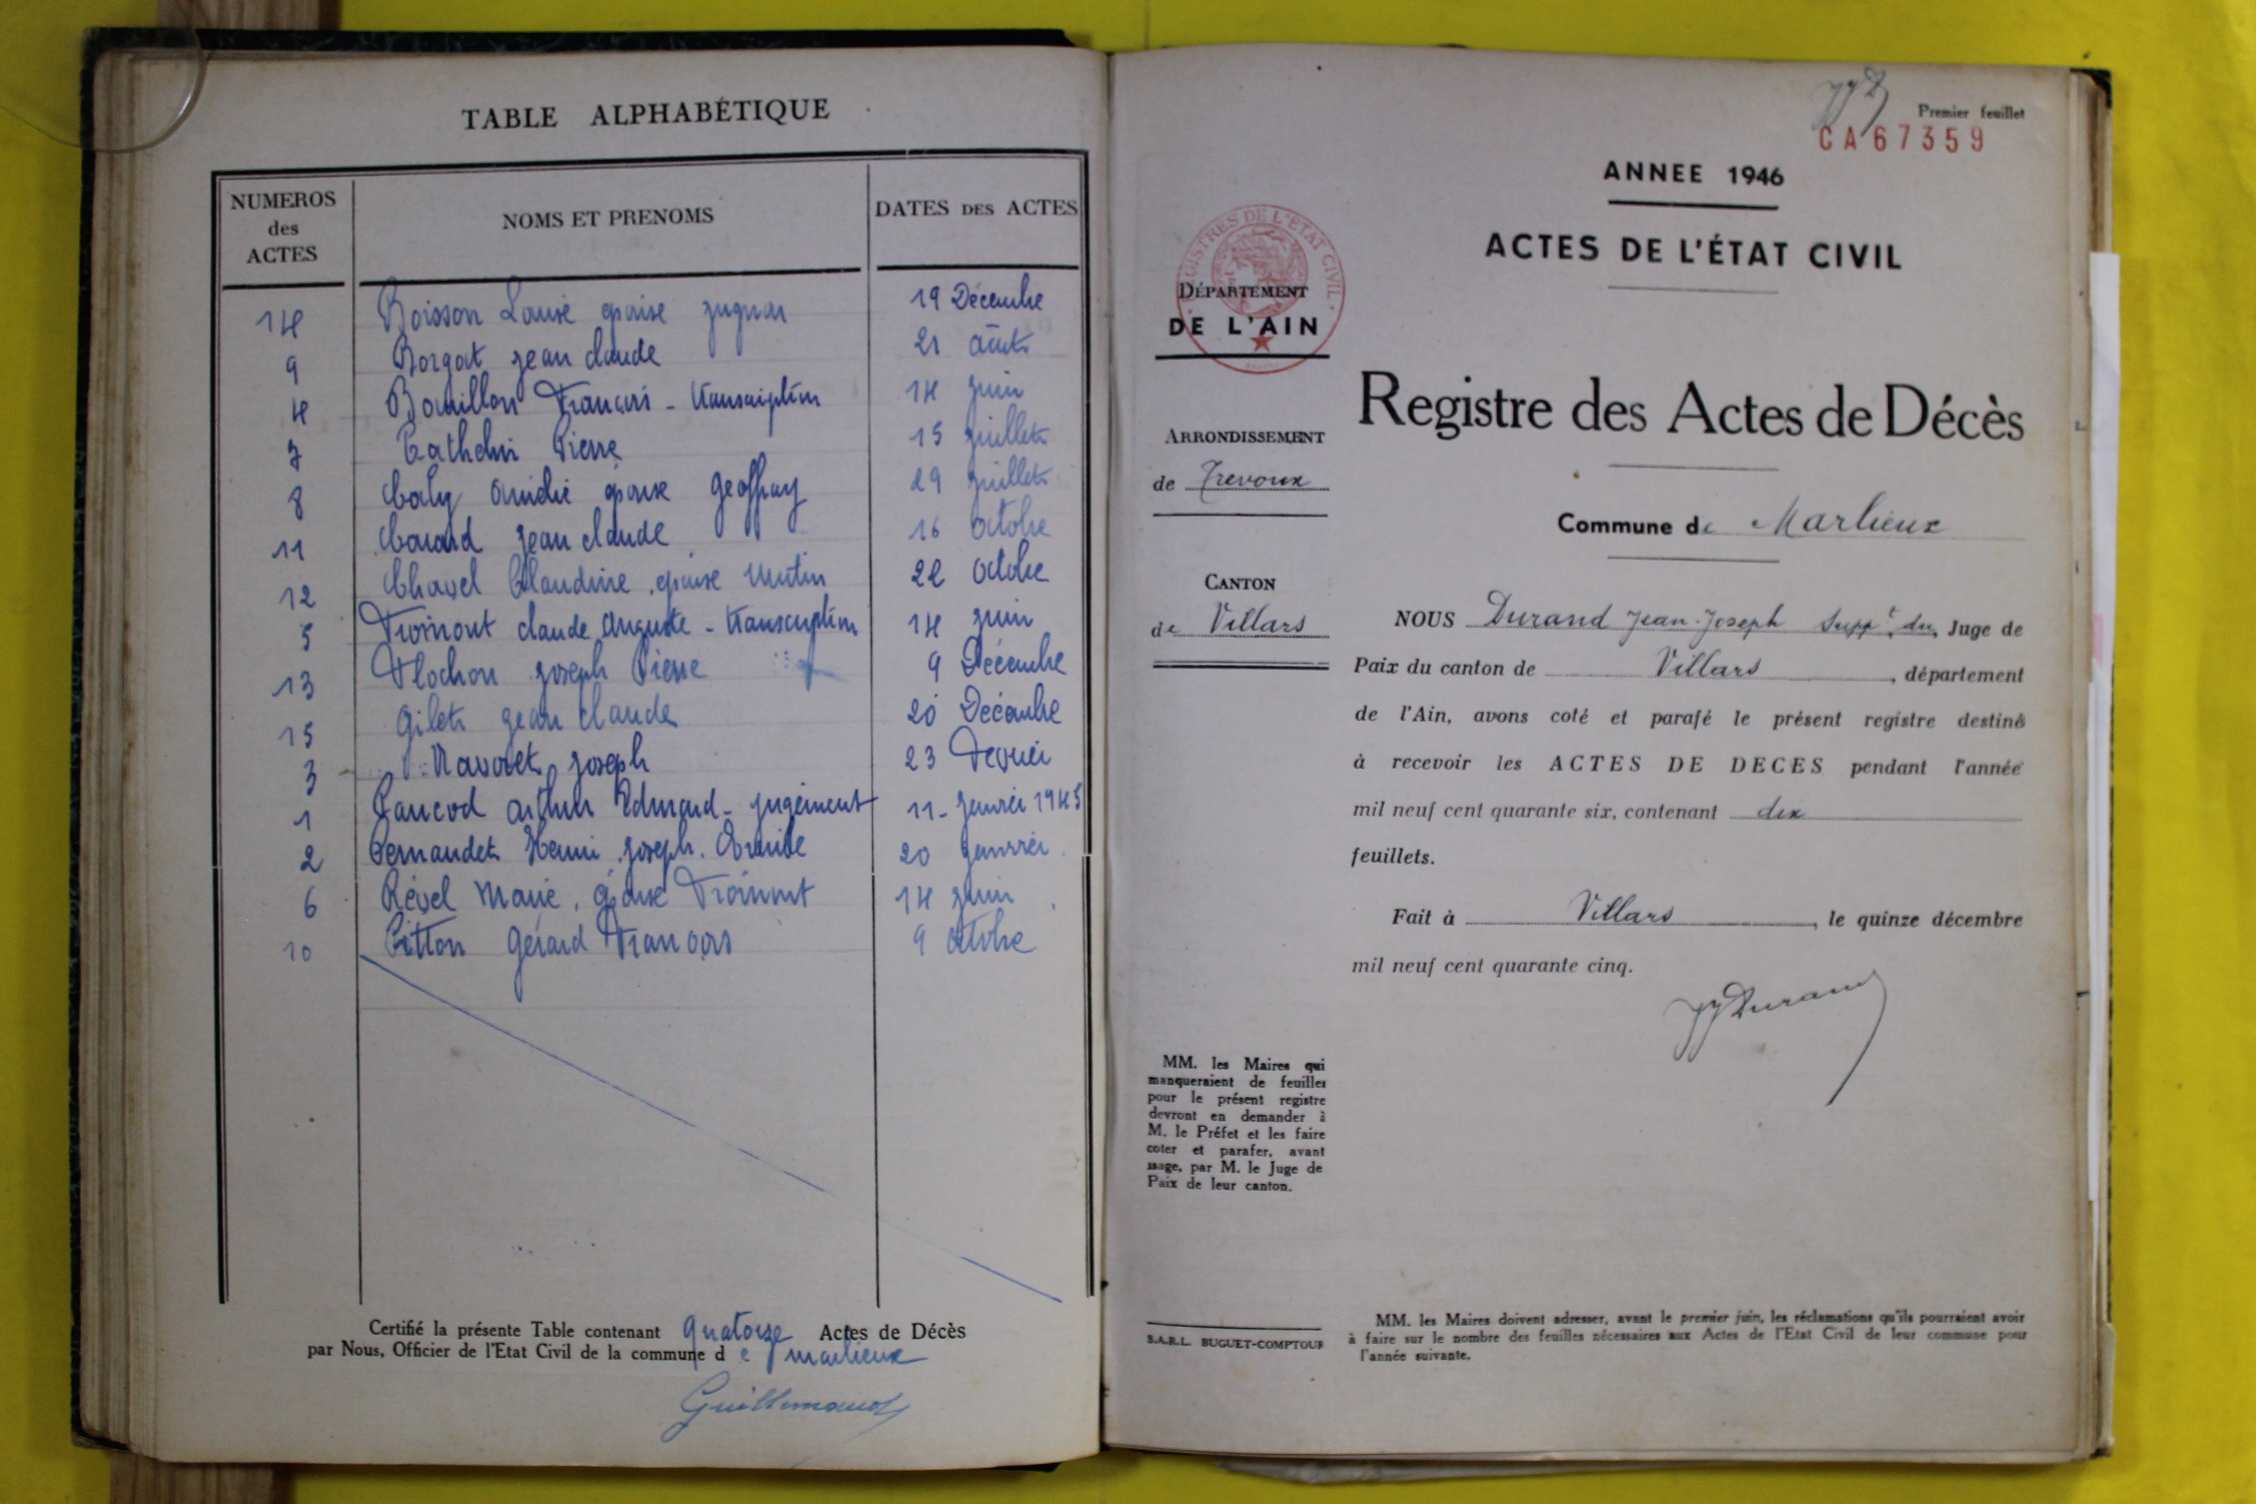 TABLE ALPHABÉTIQUE
NUMEROS des ACTES
NOMS ET PRENOMS
DATES DES ACTES
14 Boisson Louise épouse 19 Décembre
9 Borgat Jean Claude 21 août
4 Bouillon François - transcription 14 juin
7 Cathelin Pierre 15 juillet
8 épouse Geoffray 29 juillet
11 Jean Claude 16 octobre
12 Chavel Claudine épouse 22 octobre
5 claude Auguste - transcription 14 juin
13 Flochon Joseph Pierre 9 Décembre
15 Gilet Jean Claude 20 Décembre
3 Joseph 23 Février
1 Pancod arthur Edmond - jugement 11 - janvier 1945
2 Pernaudet Henri Joseph 20 janvier
6 Revel Marie épouse 14 juin
10 Pitton Gérard François 9 octobre
Certifié la présente Table contenant quatorze Actes de Décès
par Nous, Officier de l'Etat Civil de la commune de marlieux
JJD
Premier feuillet
CA67359
ANNEE 1946
ACTES DE L'ÉTAT CIVIL
REGISTRES DE L'ETAT CIVIL
DÉPARTEMENT
DE L'AIN
Registre des Actes de Décès
ARRONDISSEMENT
de Trevoux
Commune de Marlieux
CANTON
de Villars
NOUS Durand Jean-Joseph suppt du Juge de
Paix du canton de Villars, département
de l'Ain, avons coté et parafé le présent registre destiné
à recevoir les ACTES DE DECES pendant l'année
mil neuf cent quarante six, contenant dix
feuillets.
Fait à Villars, le quinze décembre
mil neuf cent quarante cinq.
JJDurand
MM. les Maires qui
manqueraient de feuilles
pour le présent registre
devront en demander à
M. le Préfet et les faire
coter et parafer, avant
usage, par M. le Juge de
Paix de leur canton.
S.A.R.L. BUGUET-COMPTOUR
MM. les Maires doivent adresser, avant le premier juin, les réclamations qu'ils pourraient avoir
à faire sur le nombre des feuilles nécessaires aux Actes de l'Etat Civil de leur commune pour
l'année suivante.